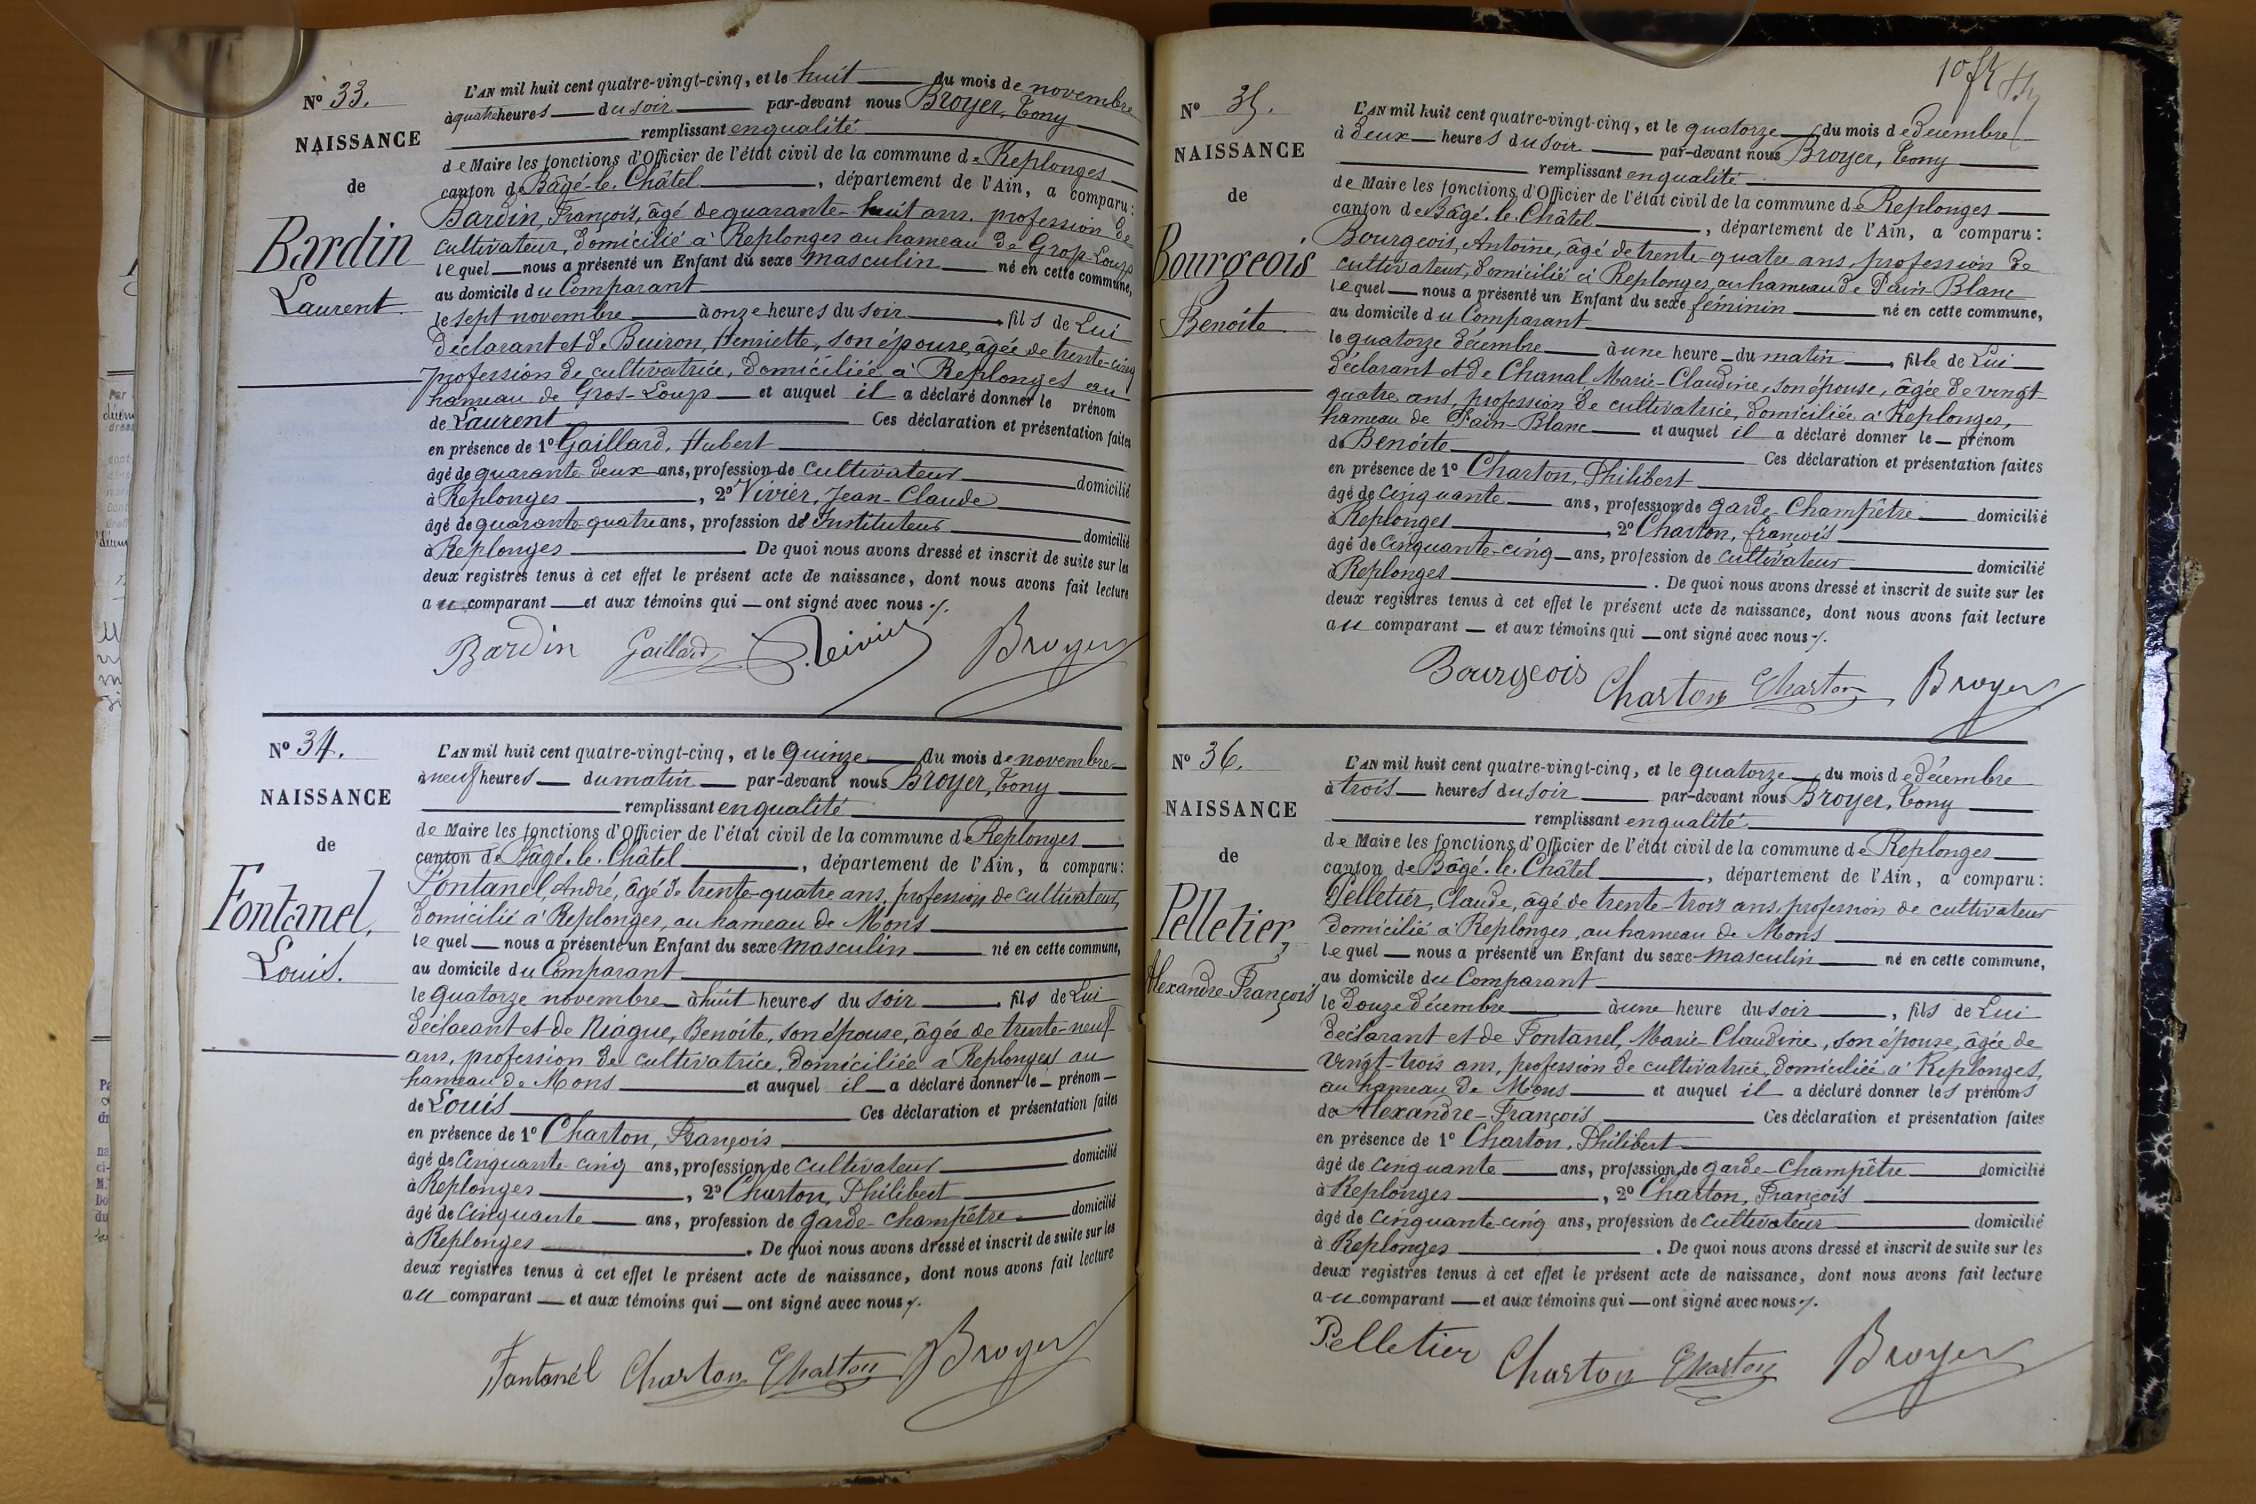 N° 33.
NAISSANCE
de
Bardin
Laurent.
L'AN mil huit cent quatre-vingt-cinq, et le huit du mois de novembre
à quatre heures du soir par-devant nous Broyer, Tony
remplissant en qualité
de Maire les fonctions d'Officier de l'état civil de la commune de Replonges
canton de Bâgé-le-Châtel, département de l'Ain, a comparu:
Bardin, François, âgé de quarante-huit ans, profession de
cultivateur, domicilié à Replonges au hameau de Gros-Loup
lequel nous a présenté un Enfant du sexe masculin né en cette commune,
au domicile du Comparant
le sept novembre à onze heures du soir, fils de Lui
déclarant et de Buiron, Henriette, son épouse, âgée de trente-cinq
profession de cultivatrice, domiciliée à Replonges au
hameau de Gros-Loup et auquel il a déclaré donner le prénom
de Laurent Ces déclaration et présentation faites
en présence de 1° Gaillard, Hubert
âgé de quarante-deux ans, profession de cultivateur domicilié
à Replonges, 2° Vivier, Jean-Claude
âgé de quarante-quatre ans, profession d'Instituteur domicilié
à Replonges. De quoi nous avons dressé et inscrit de suite sur les
deux registres tenus à cet effet le présent acte de naissance, dont nous avons fait lecture
au comparant et aux témoins qui ont signé avec nous ./.
Bardin Gaillard Vivier Broyer
N° 34.
NAISSANCE
de
Fontanel,
Louis.
L'AN mil huit cent quatre-vingt-cinq, et le quinze du mois de novembre
à neuf heures du matin par-devant nous Broyer, Tony
remplissant en qualité
de Maire les fonctions d'Officier de l'état civil de la commune de Replonges
canton de Bâgé-le-Châtel, département de l'Ain, a comparu:
Fontanel, André, âgé de trente-quatre ans, profession de cultivateur,
domicilié à Replonges, au hameau de Mons
lequel nous a présenté un Enfant du sexe masculin né en cette commune,
au domicile du Comparant
le quatorze novembre à huit heures du soir, fils de Lui
déclarant et de Niague, Benoite, son épouse, âgée de trente-neuf
ans, profession de cultivatrice, domiciliée à Replonges au
hameau de Mons et auquel il a déclaré donner le prénom
de Louis Ces déclaration et présentation faites
en présence de 1° Charton, François
âgé de cinquante-cinq ans, profession de cultivateur domicilié
à Replonges, 2° Charton, Philibert
âgé de cinquante ans, profession de garde-champêtre domicilié
à Replonges. De quoi nous avons dressé et inscrit de suite sur les
deux registres tenus à cet effet le présent acte de naissance, dont nous avons fait lecture
au comparant et aux témoins qui ont signé avec nous ./.
Fontanel Charton Charton Broyer
N° 35.
NAISSANCE
de
Bourgeois
Benoite
L'AN mil huit cent quatre-vingt-cinq, et le quatorze du mois de décembre
à deux heures du soir par-devant nous Broyer, Tony
remplissant en qualité
de Maire les fonctions d'Officier de l'état civil de la commune de Replonges
canton de Bâgé-le-Châtel, département de l'Ain, a comparu:
Bourgeois, Antoine, âgé de trente-quatre ans, profession de
cultivateur, domicilié à Replonges, au hameau de Pain-Blanc
lequel nous a présenté un Enfant du sexe féminin né en cette commune,
au domicile du Comparant
le quatorze décembre à une heure du matin, fille de Lui
déclarant et de Chanal Marie-Claudine, son épouse, âgée de vingt-
quatre ans, profession de cultivatrice, domiciliée à Replonges,
hameau de Pain-Blanc et auquel il a déclaré donner le prénom
de Benoite Ces déclaration et présentation faites
en présence de 1° Charton, Philibert
âgé de cinquante ans, profession de garde-Champêtre domicilié
à Replonges, 2° Charton, françois
âgé de cinquante-cinq ans, profession de cultivateur domicilié
à Replonges. De quoi nous avons dressé et inscrit de suite sur les
deux registres tenus à cet effet le présent acte de naissance, dont nous avons fait lecture
au comparant et aux témoins qui ont signé avec nous ./.
Bourgeois Charton Charton Broyer
N° 36.
NAISSANCE
de
Pelletier,
Alexandre François
L'AN mil huit cent quatre-vingt-cinq, et le quatorze du mois de décembre
à trois heures du soir par-devant nous Broyer, Tony
remplissant en qualité
de Maire les fonctions d'Officier de l'état civil de la commune de Replonges
canton de Bâgé-le-Châtel, département de l'Ain, a comparu:
Pelletier, Claude, âgé de trente-trois ans, profession de cultivateur
domicilié à Replonges, au hameau de Mons
lequel nous a présenté un Enfant du sexe masculin né en cette commune,
au domicile du Comparant
le douze décembre à une heure du soir, fils de Lui
déclarant et de Fontanel, Marie Claudine, son épouse, âgée de
vingt-trois ans, profession de cultivatrice, domiciliée à Replonges,
au hameau de Mons et auquel il a déclaré donner les prénoms
de Alexandre-François Ces déclaration et présentation faites
en présence de 1° Charton, Philibert
âgé de cinquante ans, profession de garde-champêtre domicilié
à Replonges, 2° Charton, François
âgé de cinquante-cinq ans, profession de cultivateur domicilié
à Replonges. De quoi nous avons dressé et inscrit de suite sur les
deux registres tenus à cet effet le présent acte de naissance, dont nous avons fait lecture
au comparant et aux témoins qui ont signé avec nous ./.
Pelletier Charton Charton Broyer